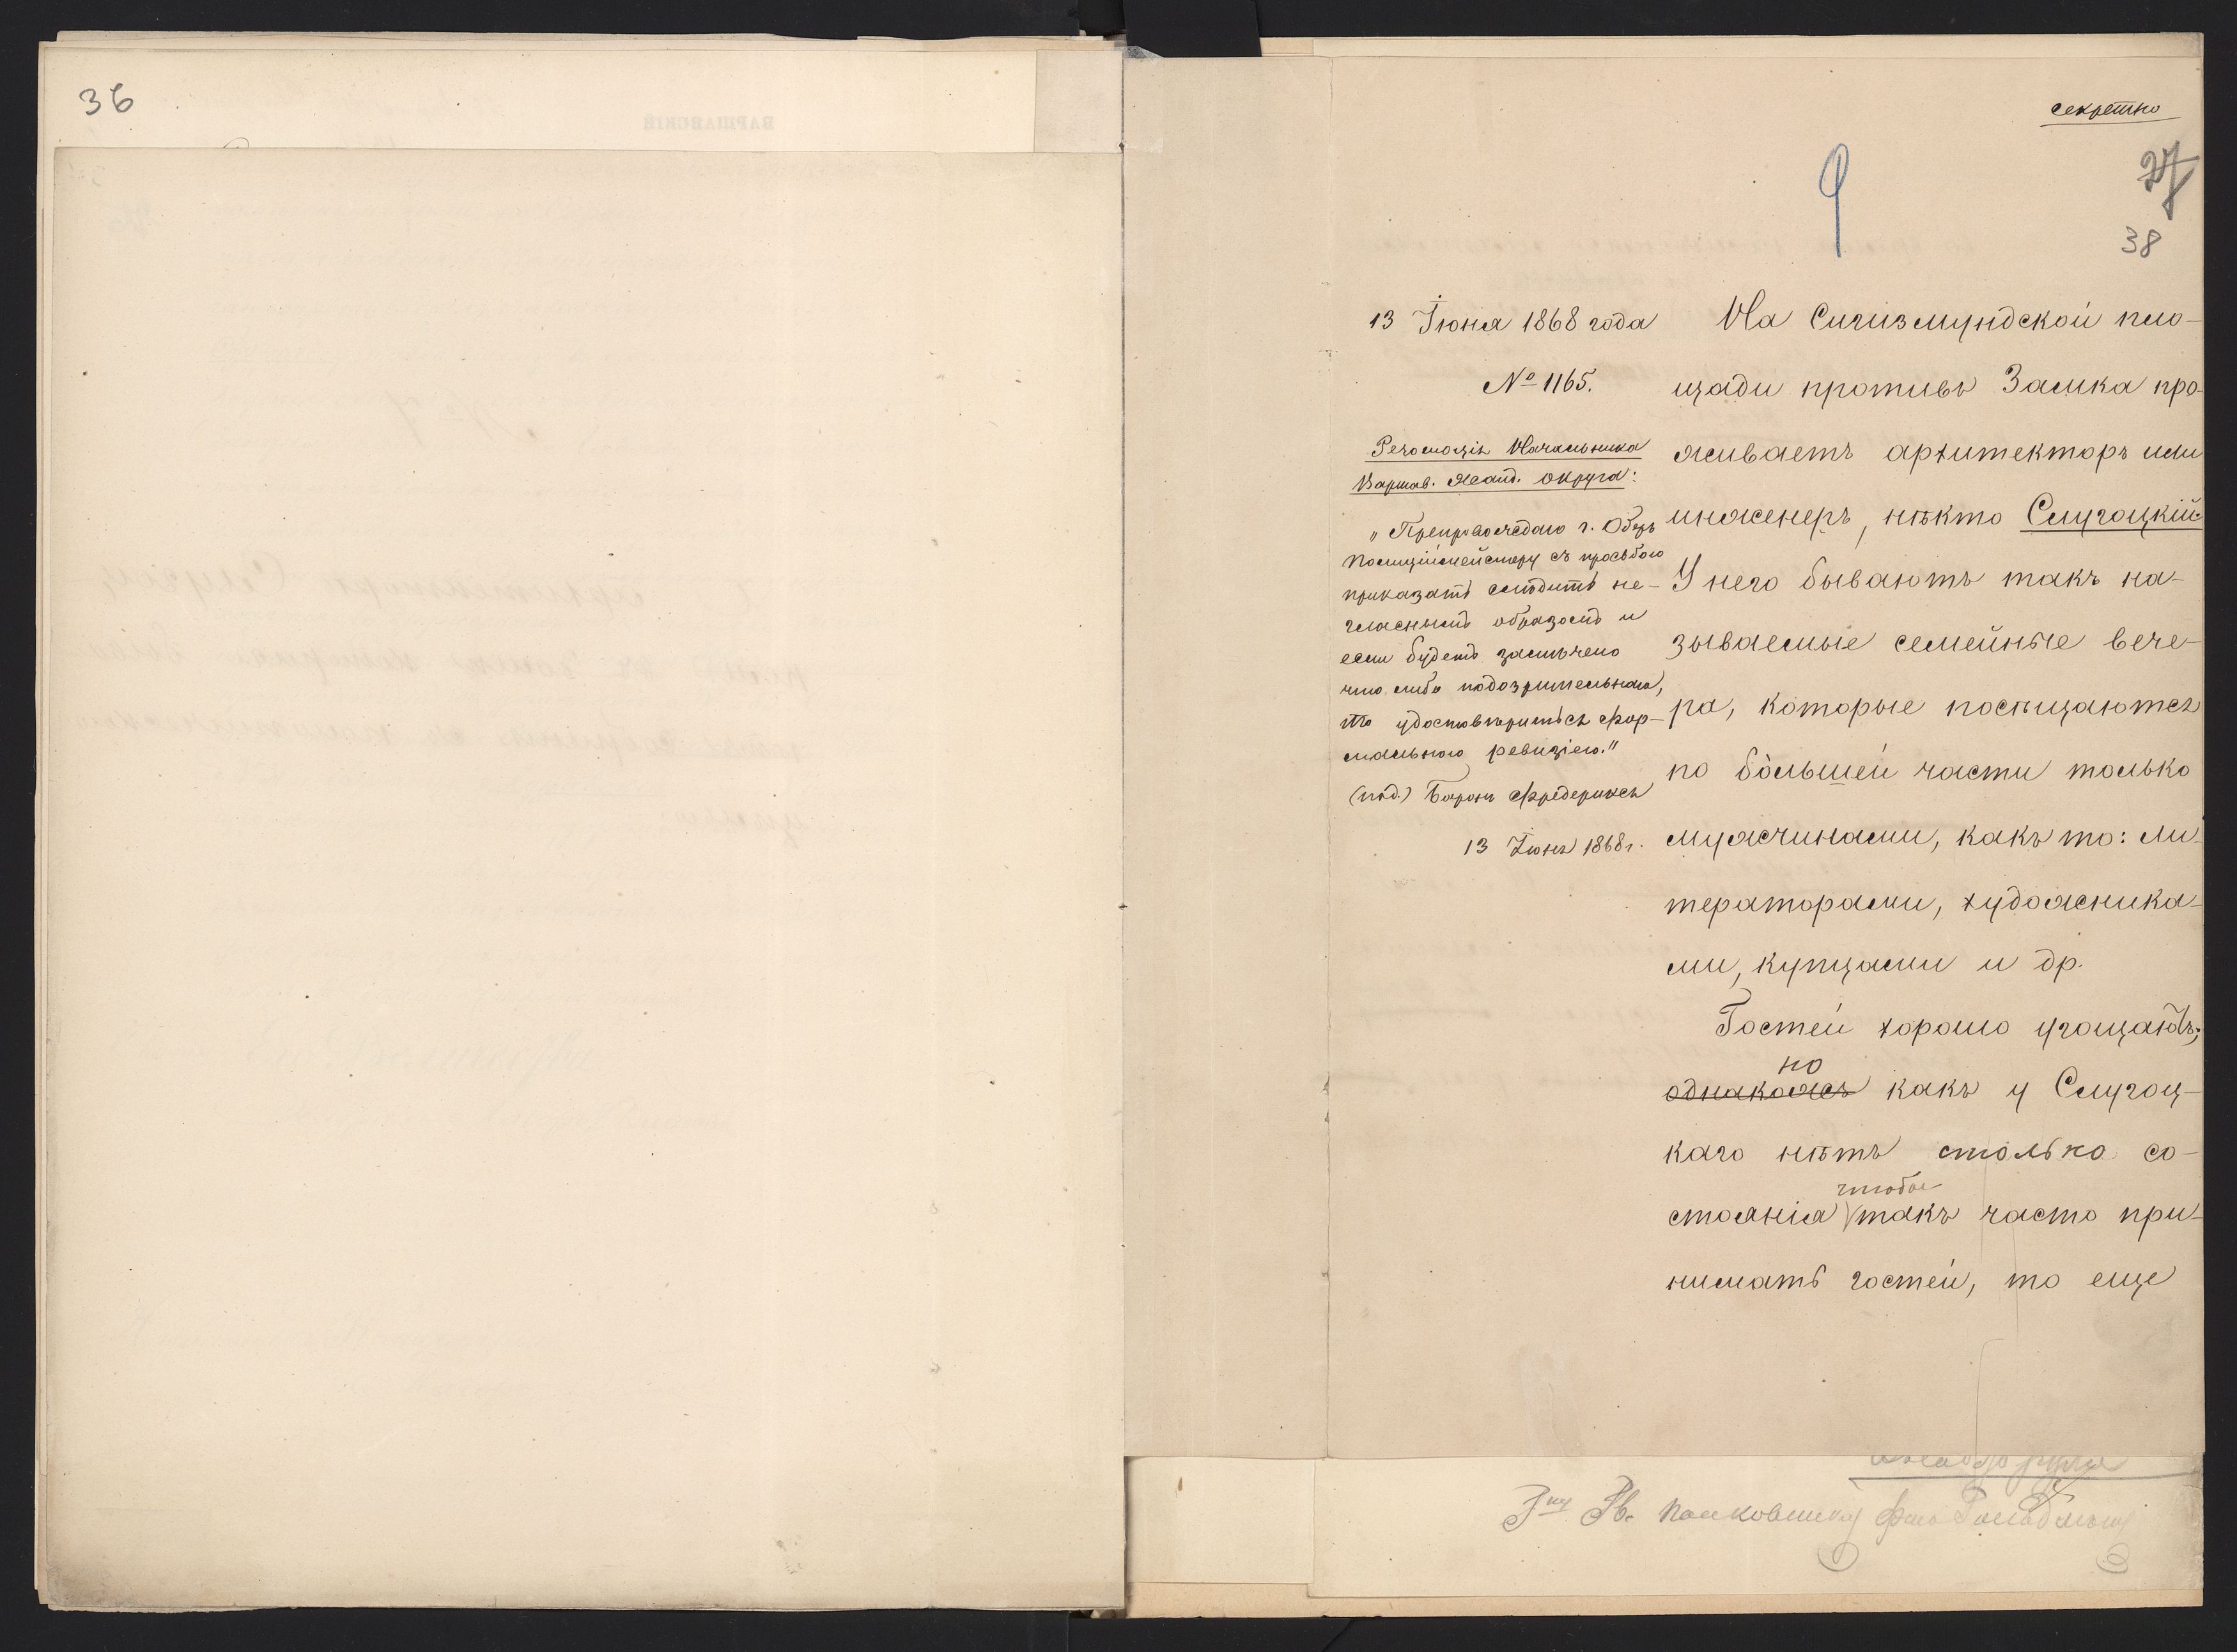 36
секретно
9
27
38
13 Іюня 1868 года
№ 1165.
Резолюція Начальника
Варшав. Жанд. округа:
„Препровождаю г. Оберъ
Полиціймейстеру съ просьбою
приказать слѣдить не-
гласнымъ образомъ и
если будетъ замѣчено
что либо подозрительнаго,
то удостовѣриться фор-
мальною ревизіею."
(под.) Баронъ Фредериксъ
13 Іюня 1868 г.
На Сигизмундской пло-
щади противъ Замка про-
живаетъ архитекторъ или
инженеръ, нѣкто Слугоцкій.
У него бываютъ такъ на-
зываемые семейные вече-
ра, которые посѣщаются
по бо́льшей части только
мужчинами, какъ то: ли-
тераторами, художника-
ми, купцами и др.
Гостей хорошо угощаютъ;
но
однакожъ какъ у Слугоц-
каго нѣтъ столько со-
чтобы
стоянія такъ часто при-
нимать гостей, то еще
Полковнику